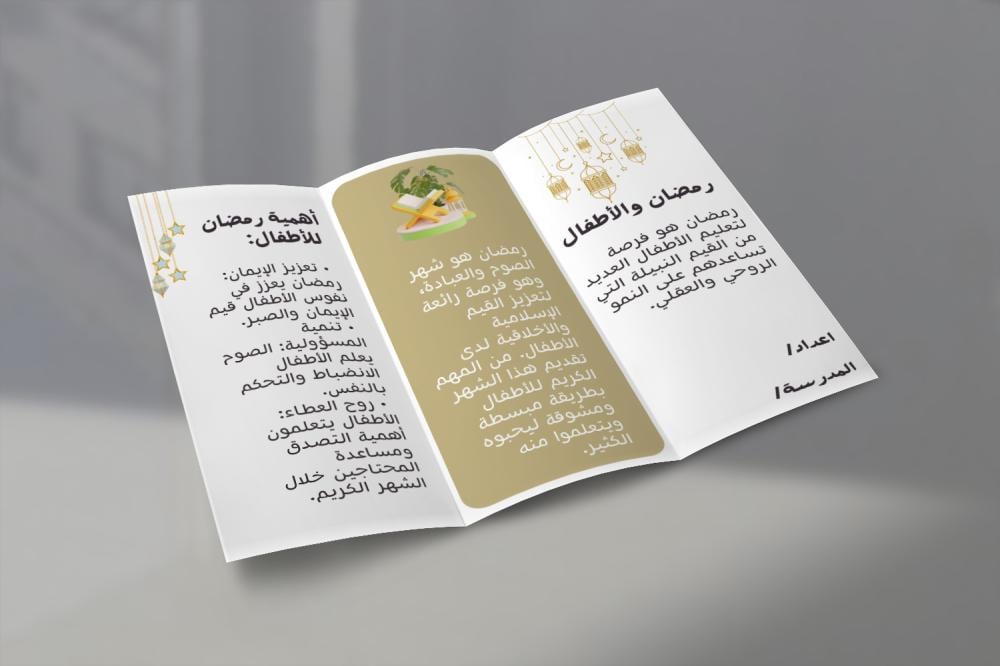 رمضان والأطفال
رمضان هو فرصة
لتعليم الأطفال العديد
من القيم النبيلة التي
تساعدهم على النمو
الروحي والعقلي.
اعداد/
المدرسة/
رمضان هو شهر
الصوم والعبادة،
وهو فرصة رائعة
لتعزيز القيم
الإسلامية
والأخلاقية لدى
الأطفال. من المهم
تقديم هذا الشهر
الكريم للأطفال
بطريقة مبسطة
ومشوقة ليحبوه
ويتعلموا منه
الكثير.
أهمية رمضان
للأطفال:
• تعزيز الإيمان:
رمضان يعزز في
نفوس الأطفال قيم
الإيمان والصبر.
• تنمية
المسؤولية: الصوم
يعلم الأطفال
الانضباط والتحكم
بالنفس.
• روح العطاء:
الأطفال يتعلمون
أهمية التصدق
ومساعدة
المحتاجين خلال
الشهر الكريم.